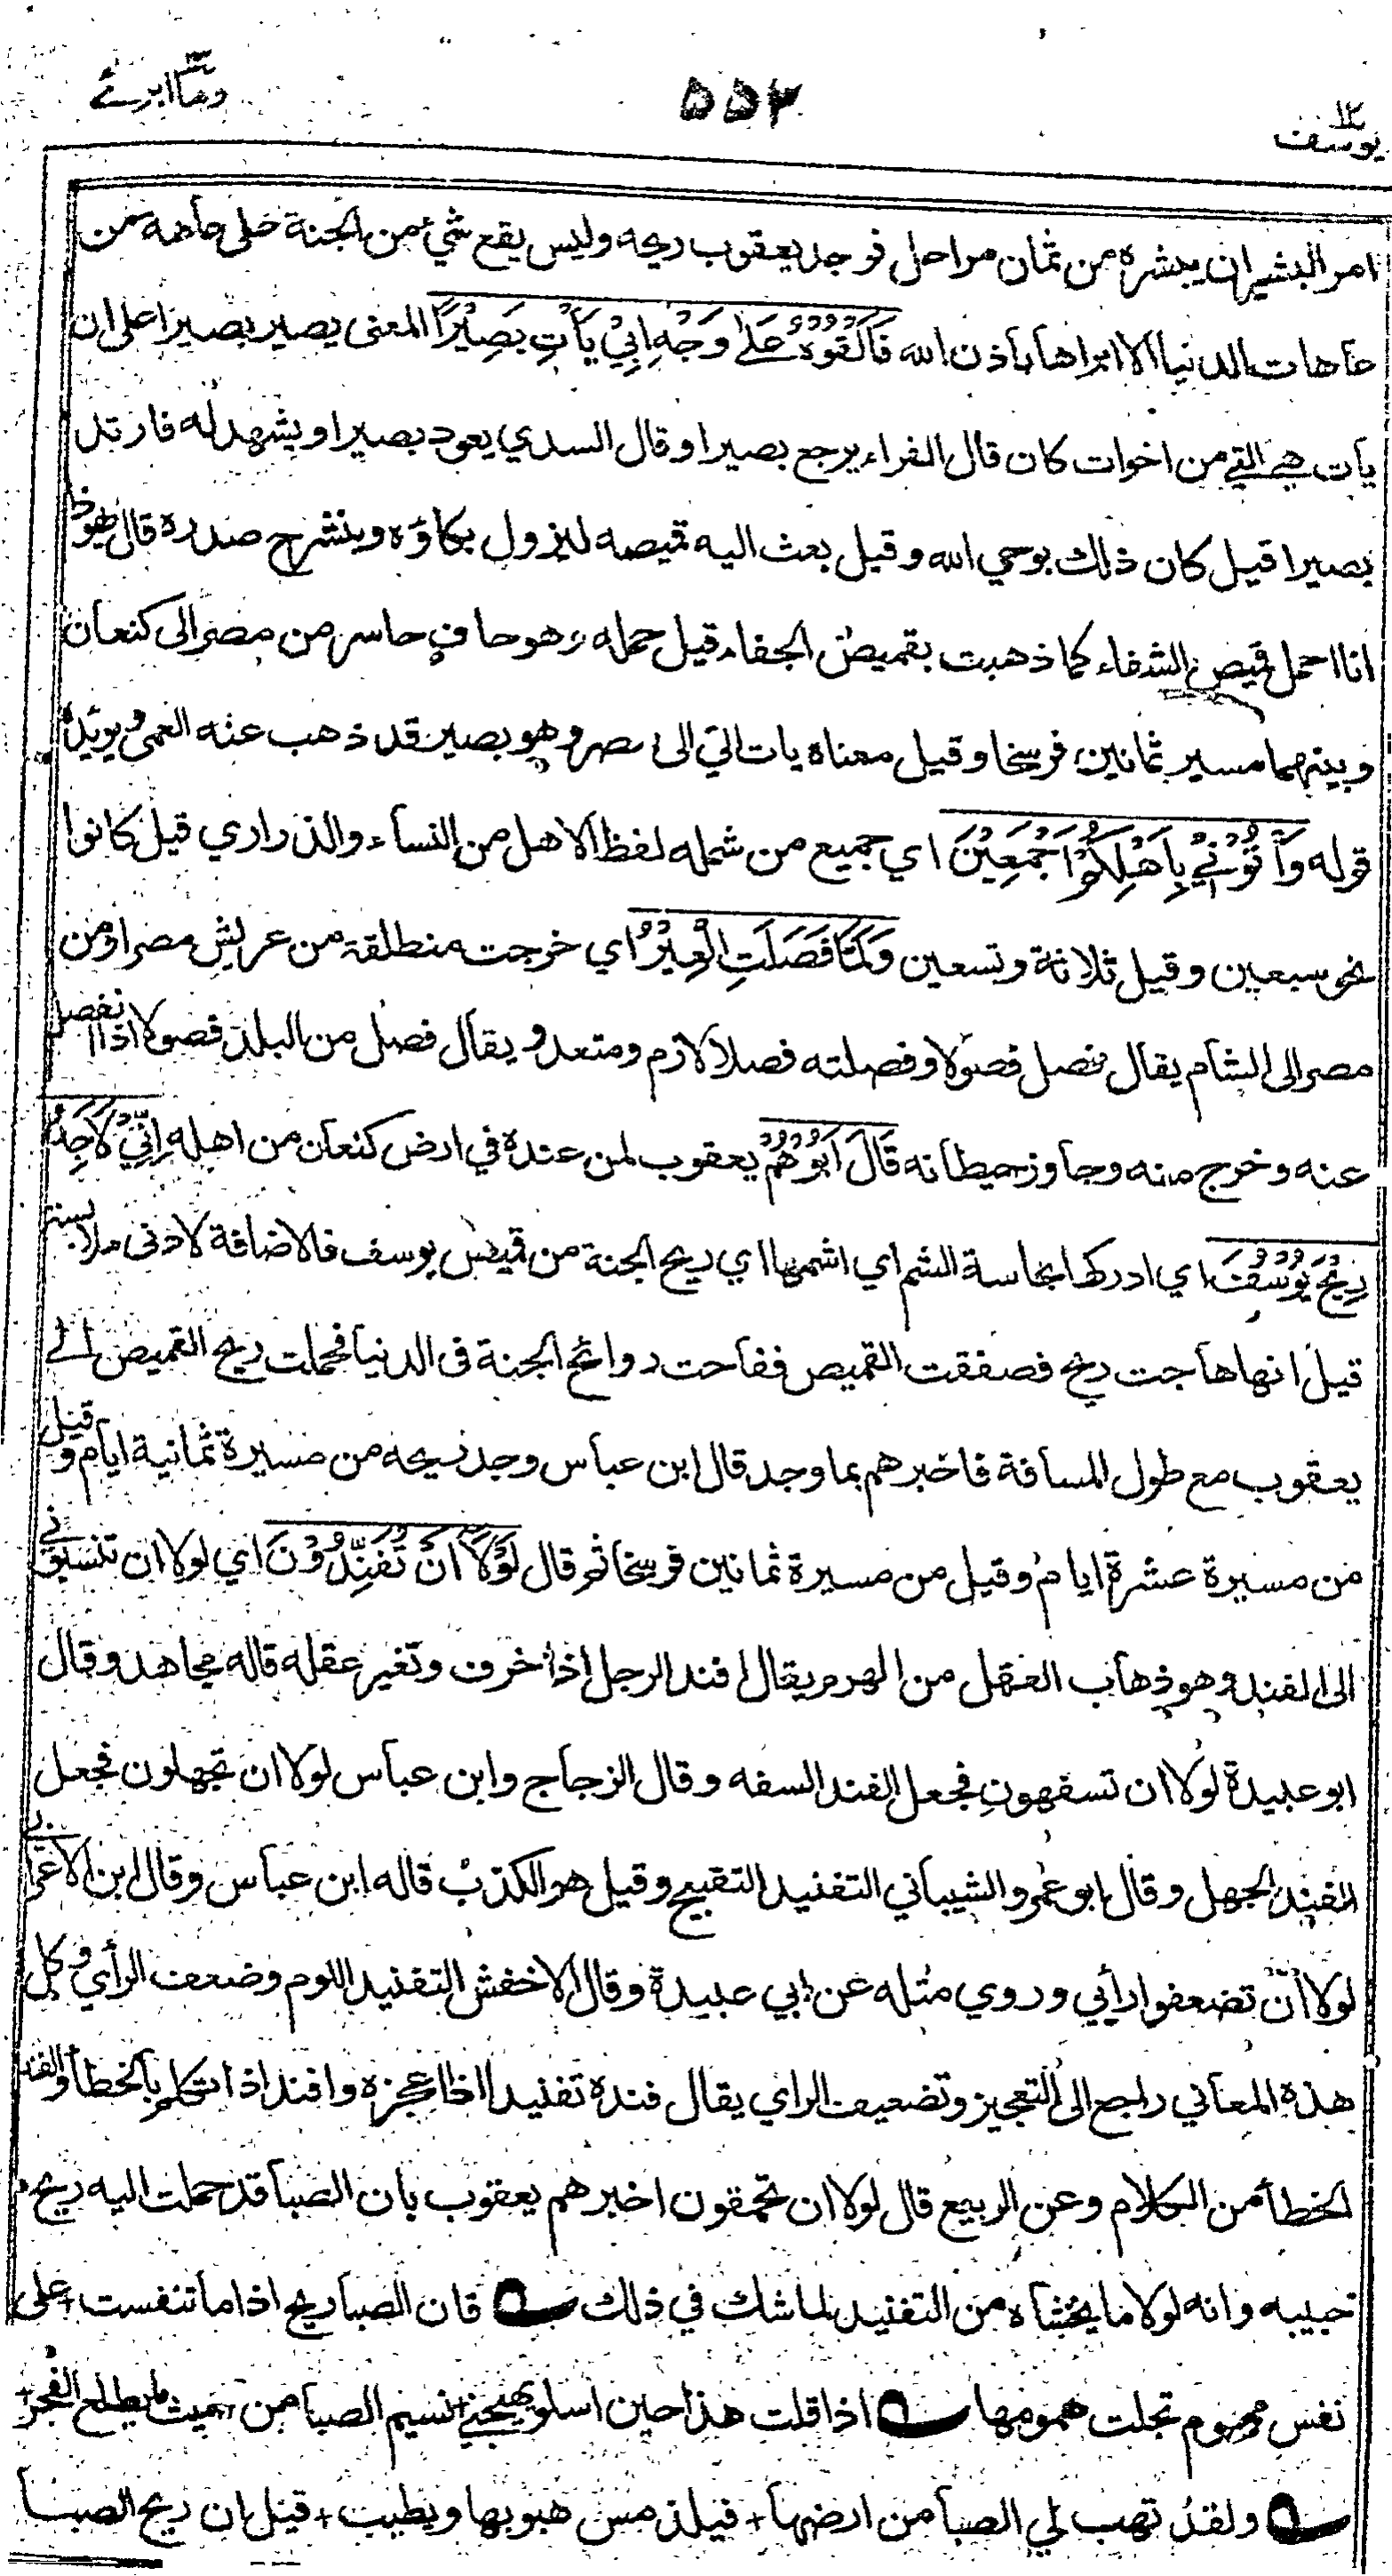 يوسف ١٢
٥٥٣
وما ابرئ
امر البشيران يبشره من ثمان مراحل فوجد يعقوب ريحه وليس يقع شيء من الجنة على عاهة من
عاهات الدنيا الا ابراها باذن الله فَأَلْقُوهُ عَلَىٰ وَجْهِ أَبِيْ يَأْتِ بَصِيْرًا المعنى يصير بصيرا على ان
يأت هي التي من اخوات كان قال الفراء يرجع بصيرا وقال السدي يعود بصيرا ويشهد له فارتد
بصيرا قيل كان ذلك بوحي الله وقيل بعث اليه قميصه ليزول بكاؤه وينشرح صدره قال يهوذا
انا احمل قميص الشفاء كما ذهبت بقميص الجفاء قيل حمله وهو حاف حاسر من مصر الى كنعان
وبينهما مسير ثمانين فرسخا وقيل معناه يات الي الى مصر وهو بصير قد ذهب عنه العمى ويؤيده
قوله وَأْتُوْنِيْ بِأَهْلِكُمْ أَجْمَعِيْنَ اي جميع من شمله لفظ الاهل من النساء والذراري قيل كانوا
نحو سبعين وقيل ثلاثة وتسعين وَلَمَّا فَصَلَتِ الْعِيْرُ اي خرجت منطلقة من عريش مصر او من
مصر الى الشام يقال فصل فصولا وفصلته فصلا لازم ومتعد ويقال فصل من البلد فصولا اذا انفصل
عنه وخرج منه وجاوز حيطانه قَالَ أَبُوْهُمْ يعقوب لمن عنده في ارض كنعان من اهله إِنِّيْ لَأَجِدُ
رِيْحَ يُوْسُفَ اي ادركها بحاسة الشم اي اشمها اي ريح الجنة من قميص يوسف فالاضافة لادنى ملابسة
قيل انها هاجت ريح فصفقت القميص ففاحت روائح الجنة في الدنيا فحملت ريح القميص الى
يعقوب مع طول المسافة فاخبرهم بما وجد قال ابن عباس وجد ريحه من مسيرة ثمانية ايام وقيل
من مسيرة عشرة ايام وقيل من مسيرة ثمانين فرسخا ثم قال لَوْلَا أَنْ تُفَنِّدُوْنَ اي لولا ان تنسبوني
الى الفند وهو ذهاب العقل من الهرم يقال افند الرجل اذا خرف وتغير عقله قاله مجاهد وقال
ابو عبيدة لولا ان تسفهون فجعل الفند السفه وقال الزجاج وابن عباس لولا ان تجهلون فجعل
الفند الجهل وقال ابو عمرو الشيباني التفنيد التقبيح وقيل هو الكذب قاله ابن عباس وقال ابن الاعرابي
لولا ان تضعفوا رأيي وروي مثله عن ابي عبيدة وقال الاخفش التفنيد اللوم وضعف الرأي وكل
هذه المعاني راجع الى التعجيز وتضعيف الراي يقال فنده تفنيدا اذا عجزه وافند اذا تكلم بالخطأ والفند
الخطأ من الكلام وعن الربيع قال لولا ان تحمقون اخبرهم يعقوب بان الصبا قد حملت اليه ريح
حبيبه وانه لولا ما يخشاه من التفنيد لما شك في ذلك فان الصبا ريح اذا ما تنفست + على
نفس مهموم تجلت همومها اذا قلت هذا حين اسلو يهيجني + نسيم الصبا من حيث ما يطلع الفجر +
ولقد تهب لي الصبا من ارضها + فيلذ مس هبوبها ويطيب + قيل ان ريح الصبا